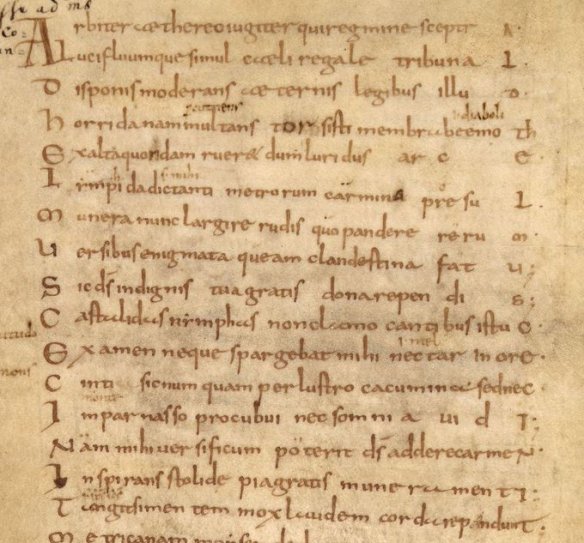 A rbiter aethereo iugiter qui regmine sceptr A
L ucifluumque simul caeli regale tribuna L
D isponis moderans aeternis legibus illu D
diaboli
H orrida nam multans torsisti membra beemo th
E x alta quondam rueret dum luridus arc E
L impida dictanti metrorum carmina presu L
M unera nunc largire rudis quo pandere reru m
U ersibus enigmata queam clandestina fat u
S ic ds indignis tua gratis dona repen di s
C astalidas nimphas non clamo cantibus istu c
i mel
E xamen neque spargebat mihi nectar in ore
C inti sic numquam perlustro cacumina sed nec
I n parnasso procubui nec somnia uid I
N am mihi uersificum poterit ds addere carme N
I nspirans stolide pia gratis munera ment I
T angit si mentem mox laudem corda rependunt